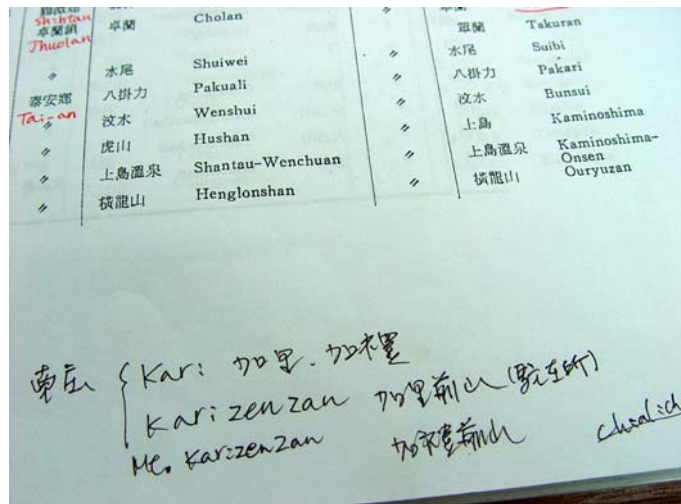 Shihtan
卓蘭鎮 卓蘭 Cholan 罩蘭 Takuran
Jhuolan
〃 水尾 Shuiwei 〃 水尾 Suibi
泰安鄉 八掛力 Pakuali 〃 八掛力 Pakari
Tai-an 汶水 Wenshui 〃 汶水 Bunsui
〃 虎山 Hushan 〃 上島 Kaminoshima
〃 上島溫泉 Shantau-Wenchuan 〃 上島溫泉 Kaminoshima-
Onsen
〃 橫龍山 Henglonshan 〃 橫龍山 Ouryuzan
南庄 { Kari 加里、加禮
Karizenzan 加里前山 (駐在所)
Mt. Karizenzan 加禮前山 chialich